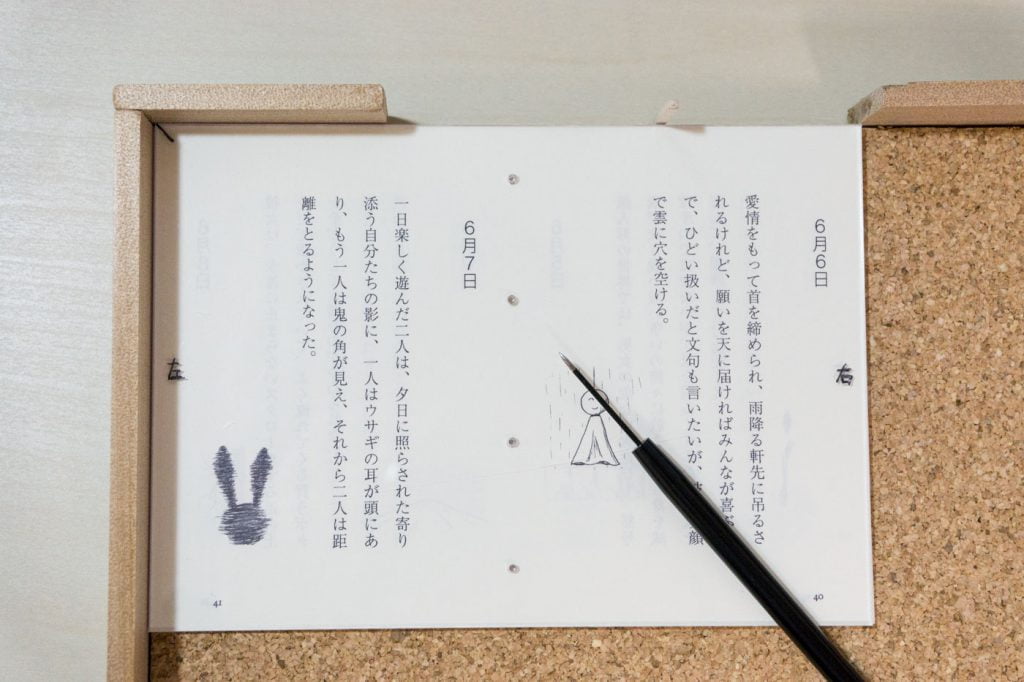 6月6日
愛情をもって首を締められ、雨降る軒先に吊るさ
れるけれど、願いを天に届ければみんなが喜ぶ
で、ひどい扱いだと文句も言いたいが、顔
で雲に穴を空ける。
40
右
6月7日
一日楽しく遊んだ二人は、夕日に照らされた寄り
添う自分たちの影に、一人はウサギの耳が頭にあ
り、もう一人は鬼の角が見え、それから二人は距
離をとるようになった。
41
左